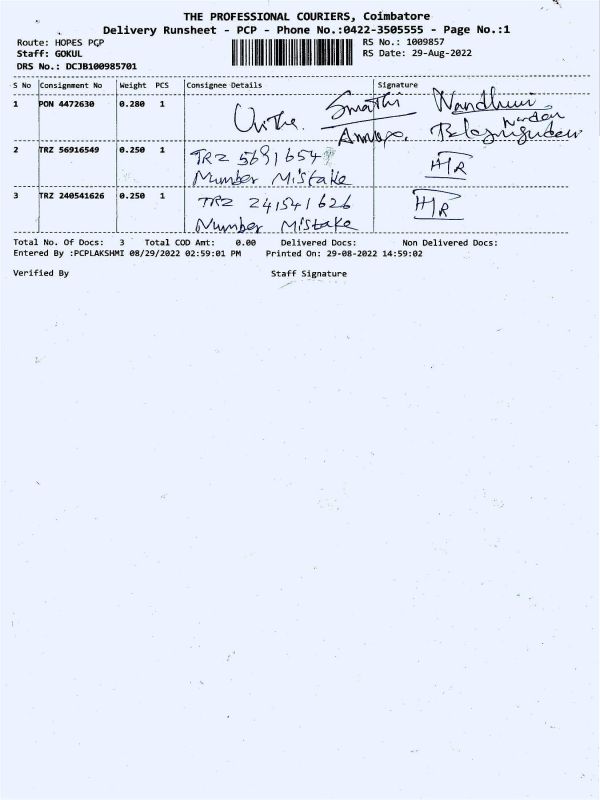 THE PROFESSIONAL COURIERS, Coimbatore
Delivery Runsheet - PCP - Phone No.:0422-3505555 - Page No.:1
Route: HOPES PCP
RS No.: 1009857
Staff: GOKUL
RS Date: 29-Aug-2022
DRS No.: DCJB100985701
S No Consignment No Weight PCS Consignee Details Signature
1 PON 4472630 0.280 1
2 TRZ 56916549 0.250 1 TRZ 5691654 H/R
Number Mistake
3 TRZ 240541626 0.250 1 TRZ 241541626 H/R
Number Mistake
Total No. Of Docs: 3 Total COD Amt: 0.00 Delivered Docs: Non Delivered Docs:
Entered By :PCPLAKSHMI 08/29/2022 02:59:01 PM Printed On: 29-08-2022 14:59:02
Verified By Staff Signature